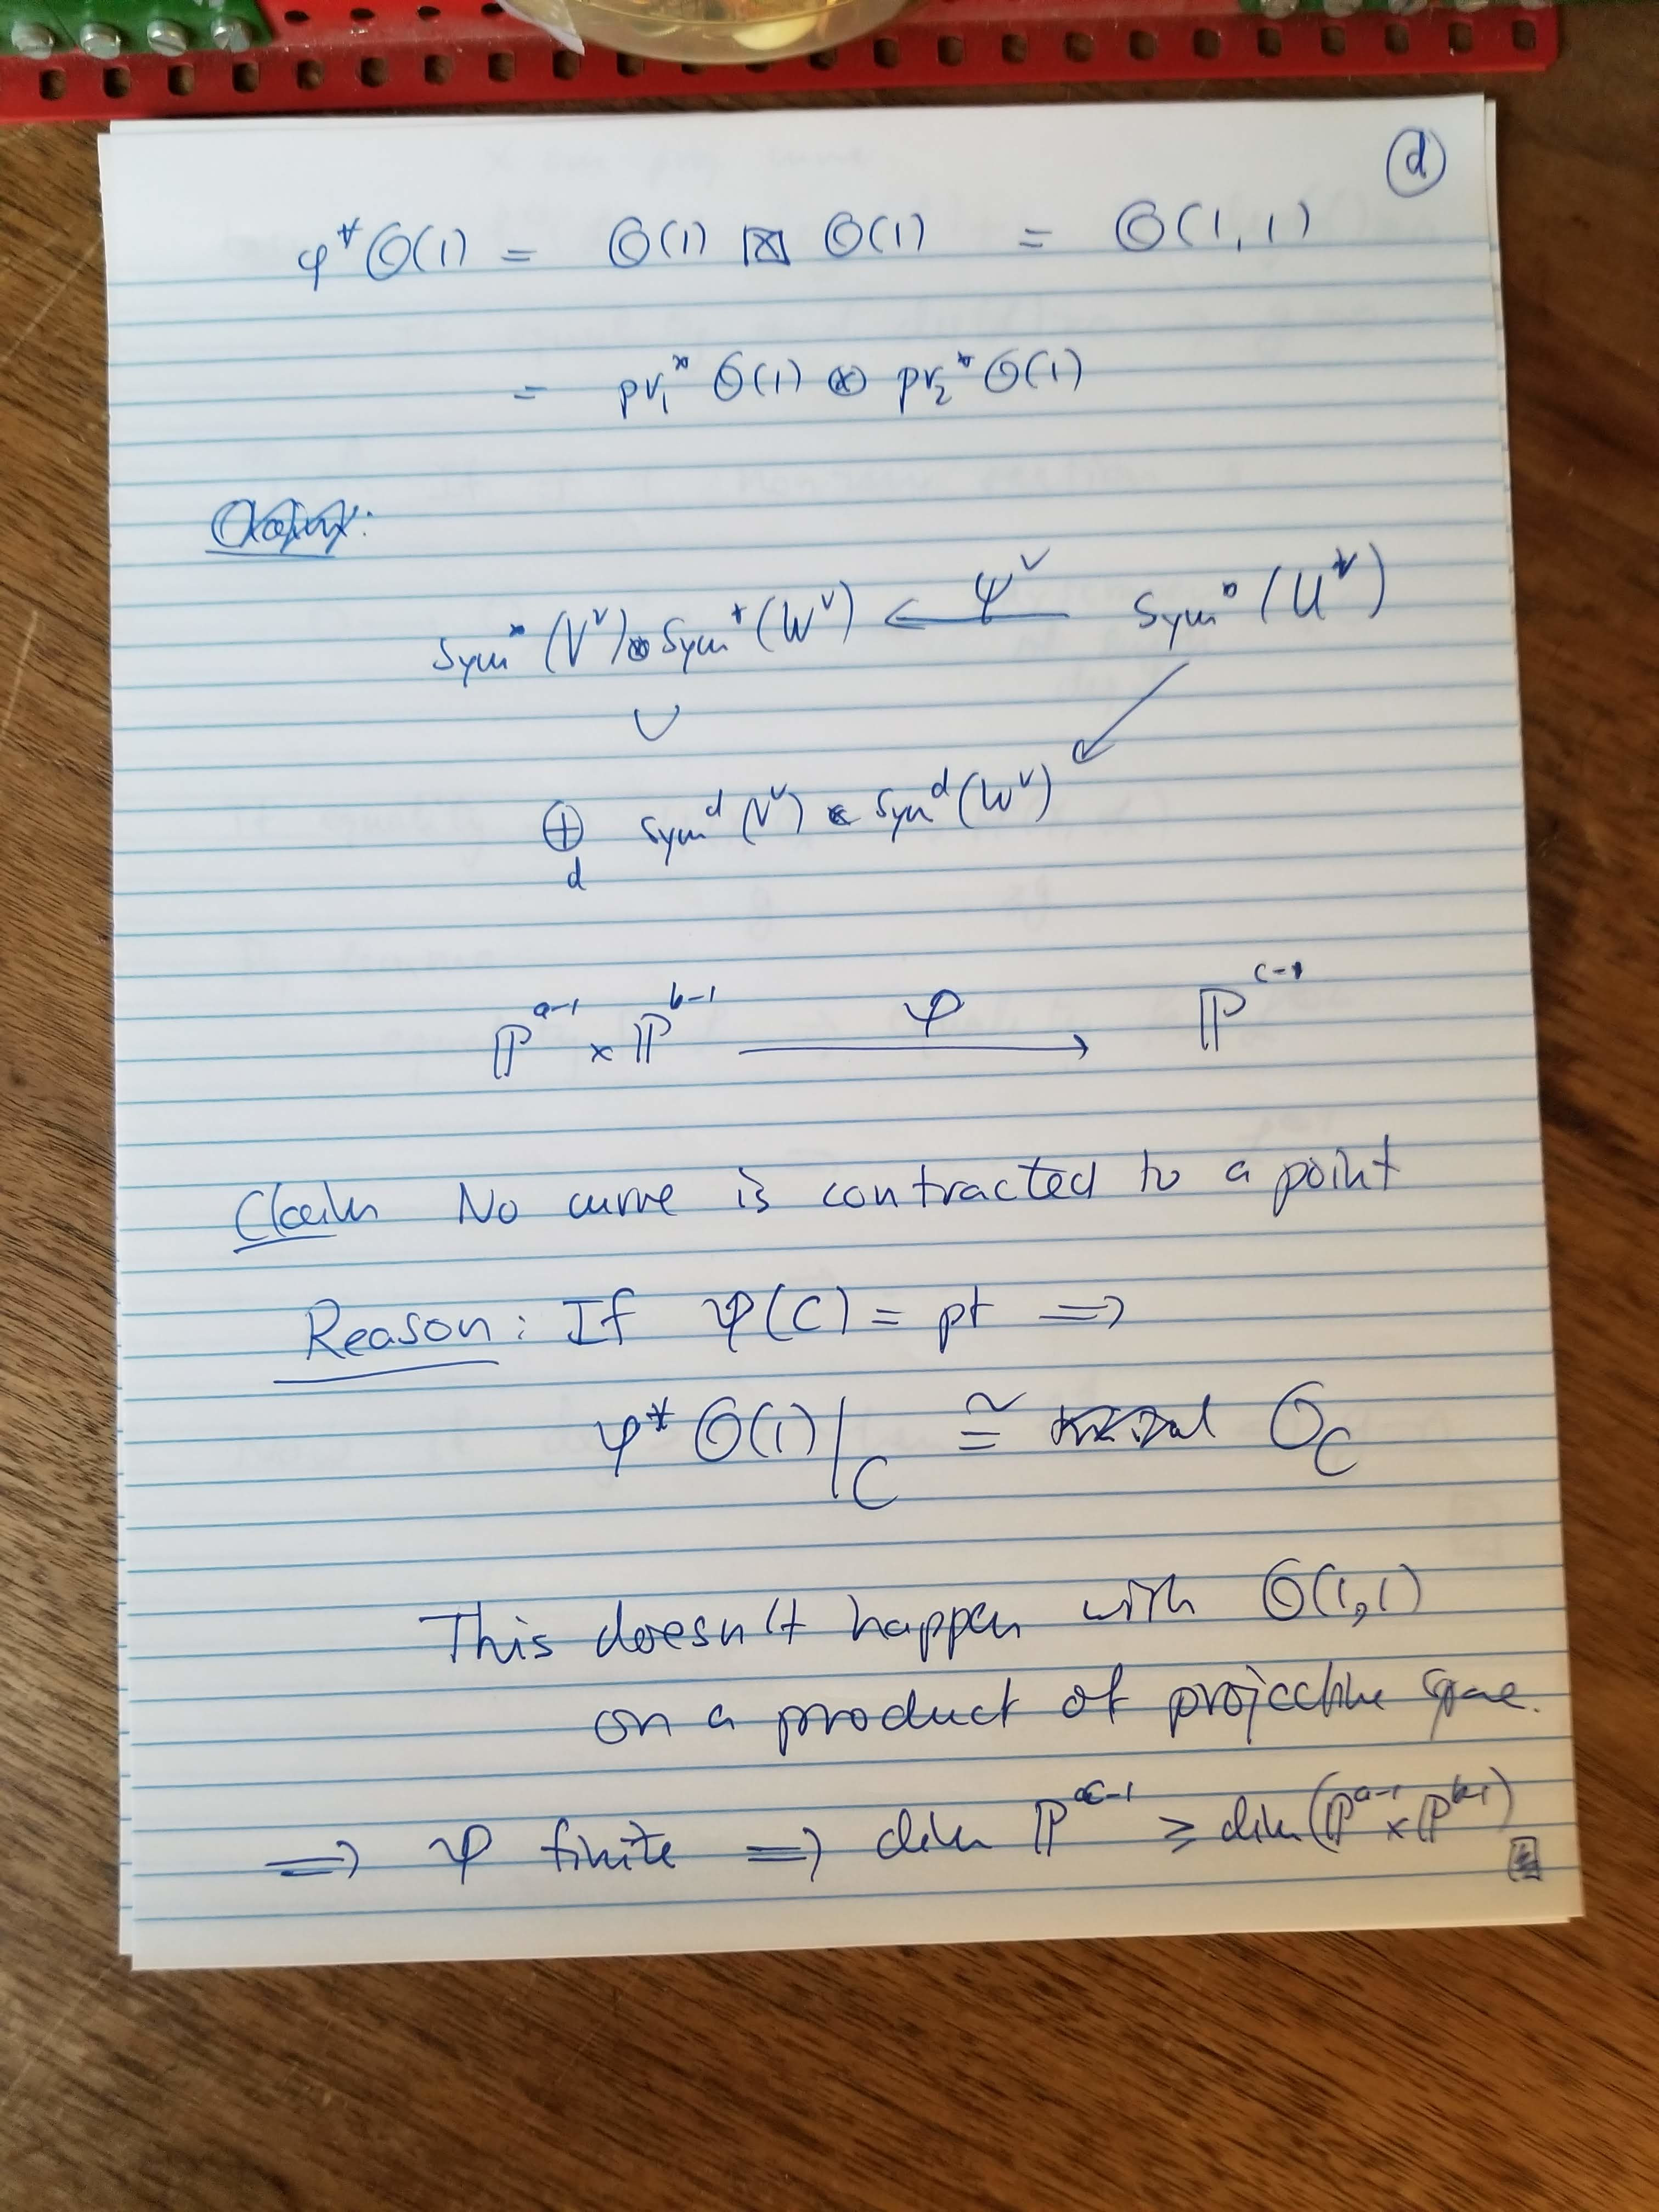 ⓓ
φ*O(1) = O(1) ⊠ O(1) = O(1,1)
= pr₁* O(1) ⊗ pr₂* O(1)
Sym*(V^∨) ⊗ Sym*(W^∨) ←ψ^∨— Sym*(U*)
∪ ↙
⊕_d Sym^d(V^∨) ⊗ Sym^d(W^∨)
ℙ^{a-1} × ℙ^{b-1} —φ→ ℙ^{c-1}
Claim No curve is contracted to a point
Reason: If φ(C) = pt ⇒
φ*O(1)|_C ≅ O_C
This doesn't happen with O(1,1)
on a product of projective space.
⇒ φ finite ⇒ dim ℙ^{c-1} ≥ dim(ℙ^{a-1} × ℙ^{b-1})